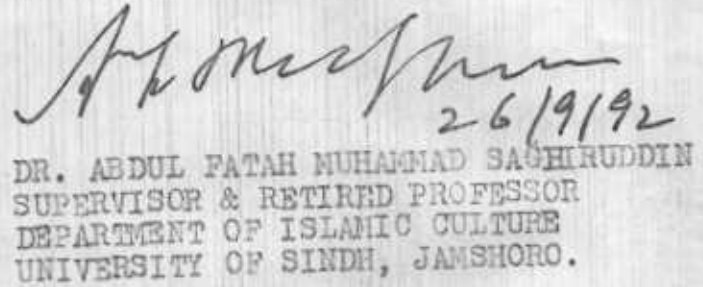 26/9/92
DR. ABDUL FATAH MUHAMMAD SAGHIRUDDIN
SUPERVISOR & RETIRED PROFESSOR
DEPARTMENT OF ISLAMIC CULTURE
UNIVERSITY OF SINDH, JAMSHORO.